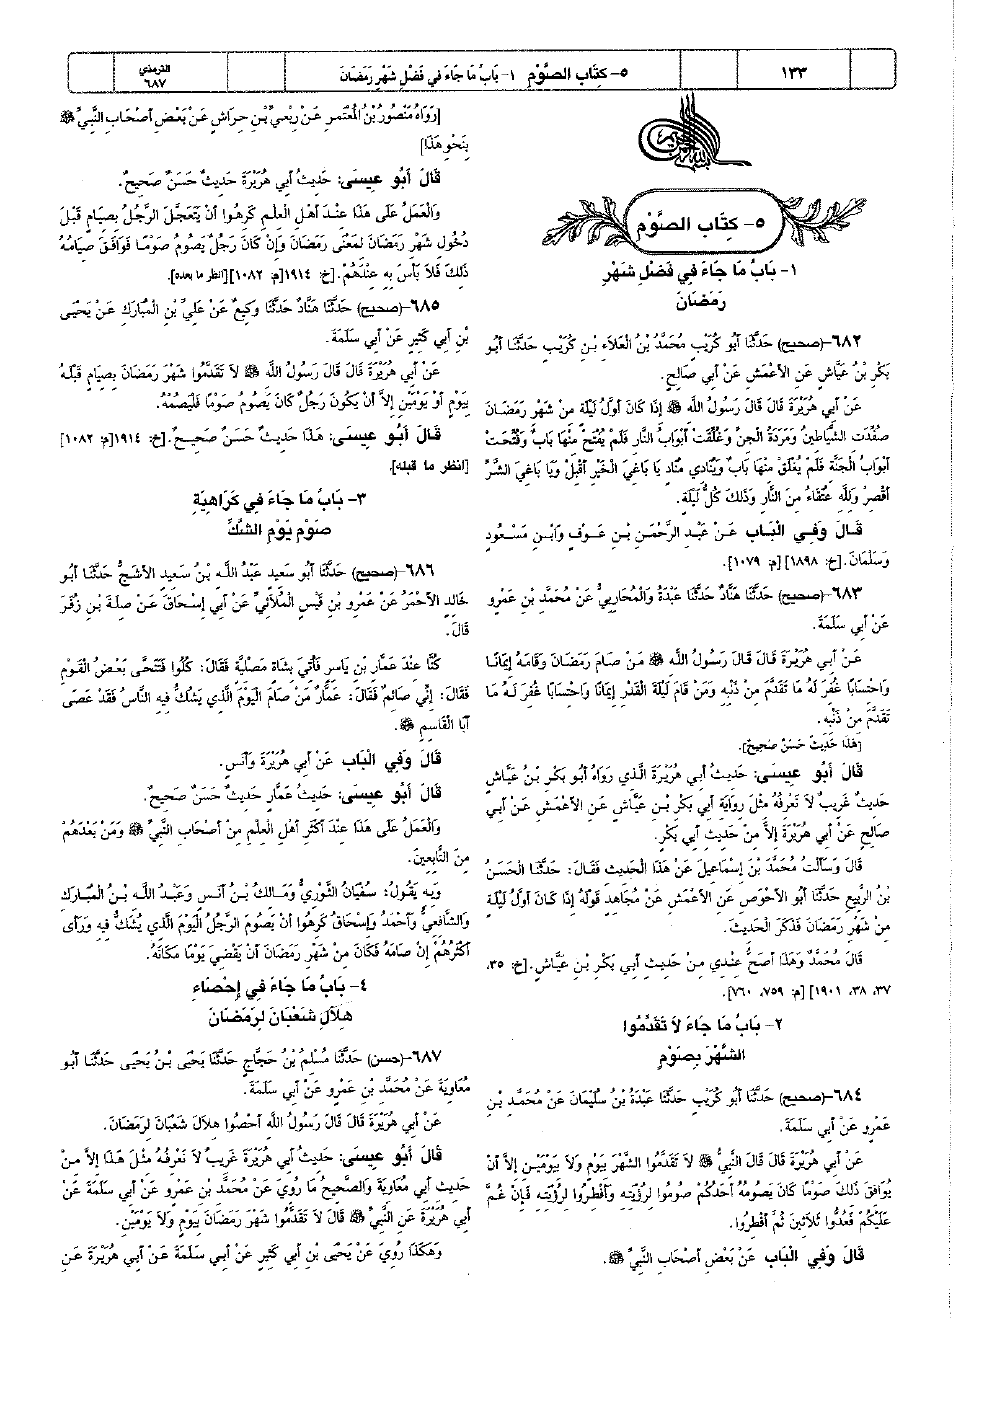 ١٣٣
٥- كتاب الصَّوْم ١- بَابُ مَا جَاءَ في فَضْلِ شَهْرِ رَمَضَانَ
الترمذي
٦٨٧
٥- كِتَاب الصَّوْم
١- بَابُ مَا جَاءَ فِي فَضْلِ شَهْرِ
رَمَضَانَ
٦٨٢-(صحيح) حَدَّثَنَا أبُو كُرَيْبٍ مُحَمَّدُ بْنُ العَلاَءِ بْنِ كُرَيْبٍ حَدَّثَنَا أبُو
بَكْرِ بْنُ عَيَّاشٍ عَنِ الأعْمَشِ عَنْ أبِي صَالِحٍ.
عَنْ أبِي هُرَيْرَةَ قَالَ قَالَ رَسُولُ اللَّه ﷺ إذَا كَانَ أوَّلُ لَيْلَةٍ مِنْ شَهْرِ رَمَضَانَ
صُفِّدَتِ الشَّيَاطِينُ وَمَرَدَةُ الجِنِّ وَغُلِّقَتْ أبْوَابُ النَّارِ فَلَمْ يُفْتَحْ مِنْهَا بَابٌ وَفُتِّحَتْ
أبْوَابُ الجَنَّةِ فَلَمْ يُغْلَقْ مِنْهَا بَابٌ وَيُنَادِي مُنَادٍ يَا بَاغِيَ الخَيْرِ أقْبِلْ وَيَا بَاغِيَ الشَّرِّ
أقْصِرْ وَلِلَّهِ عُتَقَاءُ مِنَ النَّارِ وَذَلكَ كُلُّ لَيْلَةٍ.
قَالَ وَفِي الْبَاب عَنْ عَبْدِ الرَّحْمَنِ بْنِ عَوْفٍ وَابْنِ مَسْعُودٍ
وَسَلْمَانَ.[خ: ١٨٩٨][م: ١٠٧٩].
٦٨٣-(صحيح) حَدَّثَنَا هَنَّادٌ حَدَّثَنَا عَبْدَةُ وَالْمُحَارِبِيُّ عَنْ مُحَمَّدِ بْنِ عَمْرٍو
عَنْ أبِي سَلَمَةَ.
عَنْ أبِي هُرَيْرَةَ قَالَ قَالَ رَسُولُ اللَّه ﷺ مَنْ صَامَ رَمَضَانَ وَقَامَهُ إيمَانًا
وَاحْتِسَابًا غُفِرَ لَهُ مَا تَقَدَّمَ مِنْ ذَنْبِهِ وَمَنْ قَامَ لَيْلَةَ القَدْرِ إيمَانًا وَاحْتِسَابًا غُفِرَ لَهُ مَا
تَقَدَّمَ مِنْ ذَنْبِه.
[هَذَا حَدِيثٌ حَسَنٌ صَحِيحٌ].
قَالَ أبُو عِيسَى: حَدِيثُ أبِي هُرَيْرَةَ الَّذِي رَوَاهُ أبُو بَكْرِ بْنُ عَيَّاشٍ
حَدِيثٌ غَرِيبٌ لاَ نَعْرِفُهُ مِثْلَ رِوَايَةِ أبِي بَكْرِ بْنِ عَيَّاشٍ عَنِ الأعْمَشِ عَنْ أبِي
صَالِحٍ عَنْ أبِي هُرَيْرَةَ إلاَّ مِنْ حَدِيثِ أبِي بَكْرٍ.
قَالَ وَسَألْتُ مُحَمَّدَ بْنَ إسْمَاعِيلَ عَنْ هَذَا الْحَدِيثِ فَقَالَ: حَدَّثَنَا الْحَسَنُ
بْنُ الرَّبِيعِ حَدَّثَنَا أبُو الأحْوَصِ عَنِ الأعْمَشِ عَنْ مُجَاهِدٍ قَوْلَهُ إذَا كَانَ أوَّلُ لَيْلَةٍ
مِنْ شَهْرِ رَمَضَانَ فَذَكَرَ الْحَدِيثَ.
قَالَ مُحَمَّدٌ وَهَذَا أصَحُّ عِنْدِي مِنْ حَدِيثِ أبِي بَكْرِ بْنِ عَيَّاشٍ.[خ: ٣٥،
٣٧، ٣٨، ١٩٠١][م: ٧٥٩، ٧٦٠].
٢- بَابُ مَا جَاءَ لاَ تَقَدَّمُوا
الشَّهْرَ بِصَوْمٍ
٦٨٤-(صحيح) حَدَّثَنَا أبُو كُرَيْبٍ حَدَّثَنَا عَبْدَةُ بْنُ سُلَيْمَانَ عَنْ مُحَمَّدِ بْنِ
عَمْرٍو عَنْ أبِي سَلَمَةَ.
عَنْ أبِي هُرَيْرَةَ قَالَ قَالَ النَّبِيُّ ﷺ لاَ تَقَدَّمُوا الشَّهْرَ بِيَوْمٍ وَلاَ بِيَوْمَيْنِ إلاَّ أنْ
يُوَافِقَ ذَلكَ صَوْمًا كَانَ يَصُومُهُ أحَدُكُمْ صُومُوا لِرُؤْيَتِهِ وَأفْطِرُوا لِرُؤْيَتِهِ فَإنْ غُمَّ
عَلَيْكُمْ فَعُدُّوا ثَلاَثِينَ ثُمَّ أفْطِرُوا.
قَالَ وَفِي الْبَاب عَنْ بَعْضِ أصْحَابِ النَّبِيِّ ﷺ.
[رَوَاهُ مَنْصُورُ بْنُ الْمُعْتَمِرِ عَنْ رِبْعِيِّ بْنِ حِرَاشٍ عَنْ بَعْضِ أصْحَابِ النَّبِيِّ ﷺ
بِنَحْوِ هَذَا]
قَالَ أبُو عِيسَى: حَدِيثُ أبِي هُرَيْرَةَ حَدِيثٌ حَسَنٌ صَحِيحٌ.
وَالْعَمَلُ عَلَى هَذَا عِنْدَ أهْلِ الْعِلْمِ كَرِهُوا أنْ يَتَعَجَّلَ الرَّجُلُ بِصِيَامٍ قَبْلَ
دُخُولِ شَهْرِ رَمَضَانَ لِمَعْنَى رَمَضَانَ وَإنْ كَانَ رَجُلٌ يَصُومُ صَوْمًا فَوَافَقَ صِيَامُهُ
ذَلكَ فَلاَ بَأسَ بِهِ عِنْدَهُمْ.[خ: ١٩١٤][م: ١٠٨٢][انظر ما بعده].
٦٨٥-(صحيح) حَدَّثَنَا هَنَّادٌ حَدَّثَنَا وَكِيعٌ عَنْ عَلِيِّ بْنِ الْمُبَارَكِ عَنْ يَحْيَى
بْنِ أبِي كَثِيرٍ عَنْ أبِي سَلَمَةَ.
عَنْ أبِي هُرَيْرَةَ قَالَ قَالَ رَسُولُ اللَّه ﷺ لاَ تَقَدَّمُوا شَهْرَ رَمَضَانَ بِصِيَامٍ قَبْلَهُ
بِيَوْمٍ أوْ يَوْمَيْنِ إلاَّ أنْ يَكُونَ رَجُلٌ كَانَ يَصُومُ صَوْمًا فَلْيَصُمْهُ.
قَالَ أبُو عِيسَى: هَذَا حَدِيثٌ حَسَنٌ صَحِيحٌ.[خ: ١٩١٤][م: ١٠٨٢]
[انظر ما قبله].
٣- بَابُ مَا جَاءَ فِي كَرَاهِيَةِ
صَوْمِ يَوْمِ الشَّكِّ
٦٨٦-(صحيح) حَدَّثَنَا أبُو سَعِيدٍ عَبْدُ اللَّه بْنُ سَعِيدٍ الأشَجُّ حَدَّثَنَا أبُو
خَالِدٍ الأحْمَرُ عَنْ عَمْرِو بْنِ قَيْسٍ الْمُلاَئِيِّ عَنْ أبِي إسْحَاقَ عَنْ صِلَةَ بْنِ زُفَرَ
قَالَ.
كُنَّا عِنْدَ عَمَّارِ بْنِ يَاسِرٍ فَأُتِيَ بِشَاةٍ مَصْلِيَّةٍ فَقَالَ: كُلُوا فَتَنَحَّى بَعْضُ الْقَوْمِ
فَقَالَ: إنِّي صَائِمٌ فَقَالَ: عَمَّارٌ مَنْ صَامَ الْيَوْمَ الَّذِي يَشُكُّ فِيهِ النَّاسُ فَقَدْ عَصَى
أبَا الْقَاسِمِ ﷺ.
قَالَ وَفِي الْبَاب عَنْ أبِي هُرَيْرَةَ وَأنَسٍ.
قَالَ أبُو عِيسَى: حَدِيثُ عَمَّارٍ حَدِيثٌ حَسَنٌ صَحِيحٌ.
وَالْعَمَلُ عَلَى هَذَا عِنْدَ أكْثَرِ أهْلِ الْعِلْمِ مِنْ أصْحَابِ النَّبِيِّ ﷺ وَمَنْ بَعْدَهُمْ
مِنَ التَّابِعِينَ.
وَبِهِ يَقُولُ: سُفْيَانُ الثَّوْرِيُّ وَمَالِكُ بْنُ أنَسٍ وَعَبْدُ اللَّه بْنُ الْمُبَارَكِ
وَالشَّافِعِيُّ وَأحْمَدُ وَإسْحَاقُ كَرِهُوا أنْ يَصُومَ الرَّجُلُ الْيَوْمَ الَّذِي يُشَكُّ فِيهِ وَرَأى
أكْثَرُهُمْ إنْ صَامَهُ فَكَانَ مِنْ شَهْرِ رَمَضَانَ أنْ يَقْضِيَ يَوْمًا مَكَانَهُ.
٤- بَابُ مَا جَاءَ فِي إحْصَاءِ
هِلاَلِ شَعْبَانَ لِرَمَضَانَ
٦٨٧-(حسن) حَدَّثَنَا مُسْلِمُ بْنُ حَجَّاجٍ حَدَّثَنَا يَحْيَى بْنُ يَحْيَى حَدَّثَنَا أبُو
مُعَاوِيَةَ عَنْ مُحَمَّدِ بْنِ عَمْرٍو عَنْ أبِي سَلَمَةَ.
عَنْ أبِي هُرَيْرَةَ قَالَ قَالَ رَسُولُ اللَّه أحْصُوا هِلاَلَ شَعْبَانَ لِرَمَضَانَ.
قَالَ أبُو عِيسَى: حَدِيثُ أبِي هُرَيْرَةَ غَرِيبٌ لاَ نَعْرِفُهُ مِثْلَ هَذَا إلاَّ مِنْ
حَدِيثِ أبِي مُعَاوِيَةَ وَالصَّحِيحُ مَا رُوِيَ عَنْ مُحَمَّدِ بْنِ عَمْرٍو عَنْ أبِي سَلَمَةَ عَنْ
أبِي هُرَيْرَةَ عَنِ النَّبِيِّ ﷺ قَالَ لاَ تَقَدَّمُوا شَهْرَ رَمَضَانَ بِيَوْمٍ وَلاَ يَوْمَيْنِ.
وَهَكَذَا رُوِيَ عَنْ يَحْيَى بْنِ أبِي كَثِيرٍ عَنْ أبِي سَلَمَةَ عَنْ أبِي هُرَيْرَةَ عَنِ